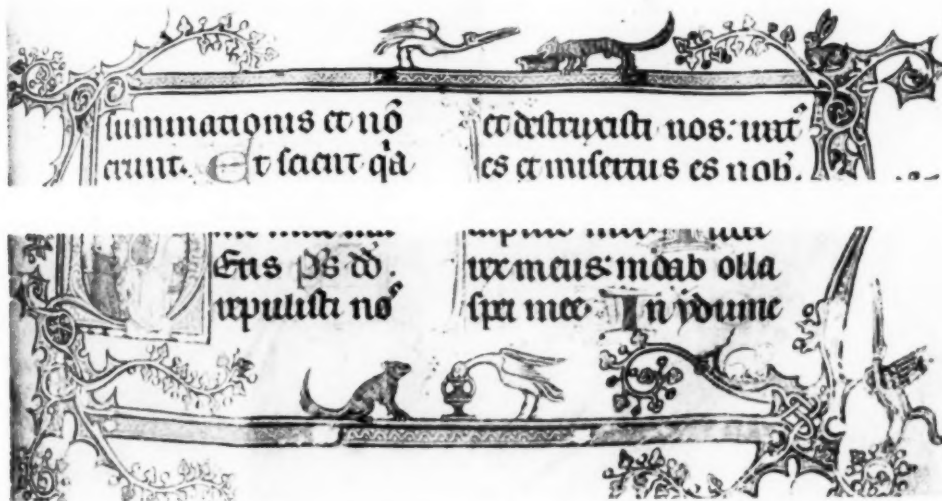 summationis et nō
erunt. Et scient q̄a
et destruxisti nos: irat᷒
es et misertus es nob᷒.
Eus Ps dd.
repulisti noˢ
rex meus: moab olla
spei mee. In ydume